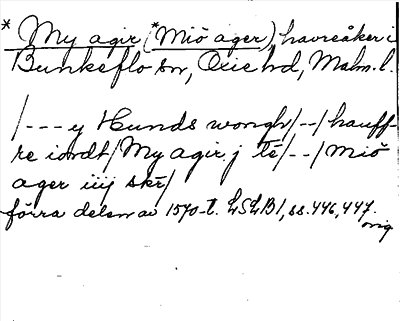 * My agir (*Miö ager), havreåker i
Bunkeflo sn, Oxie hd, Malm. l.
/---y Hunds wongh/--/hauff-
re iordt/My agir j tē/--/Miö
ager iiij skr̄/
förra delen av 1570-t. LSLB1, ss. 446, 447.
orig